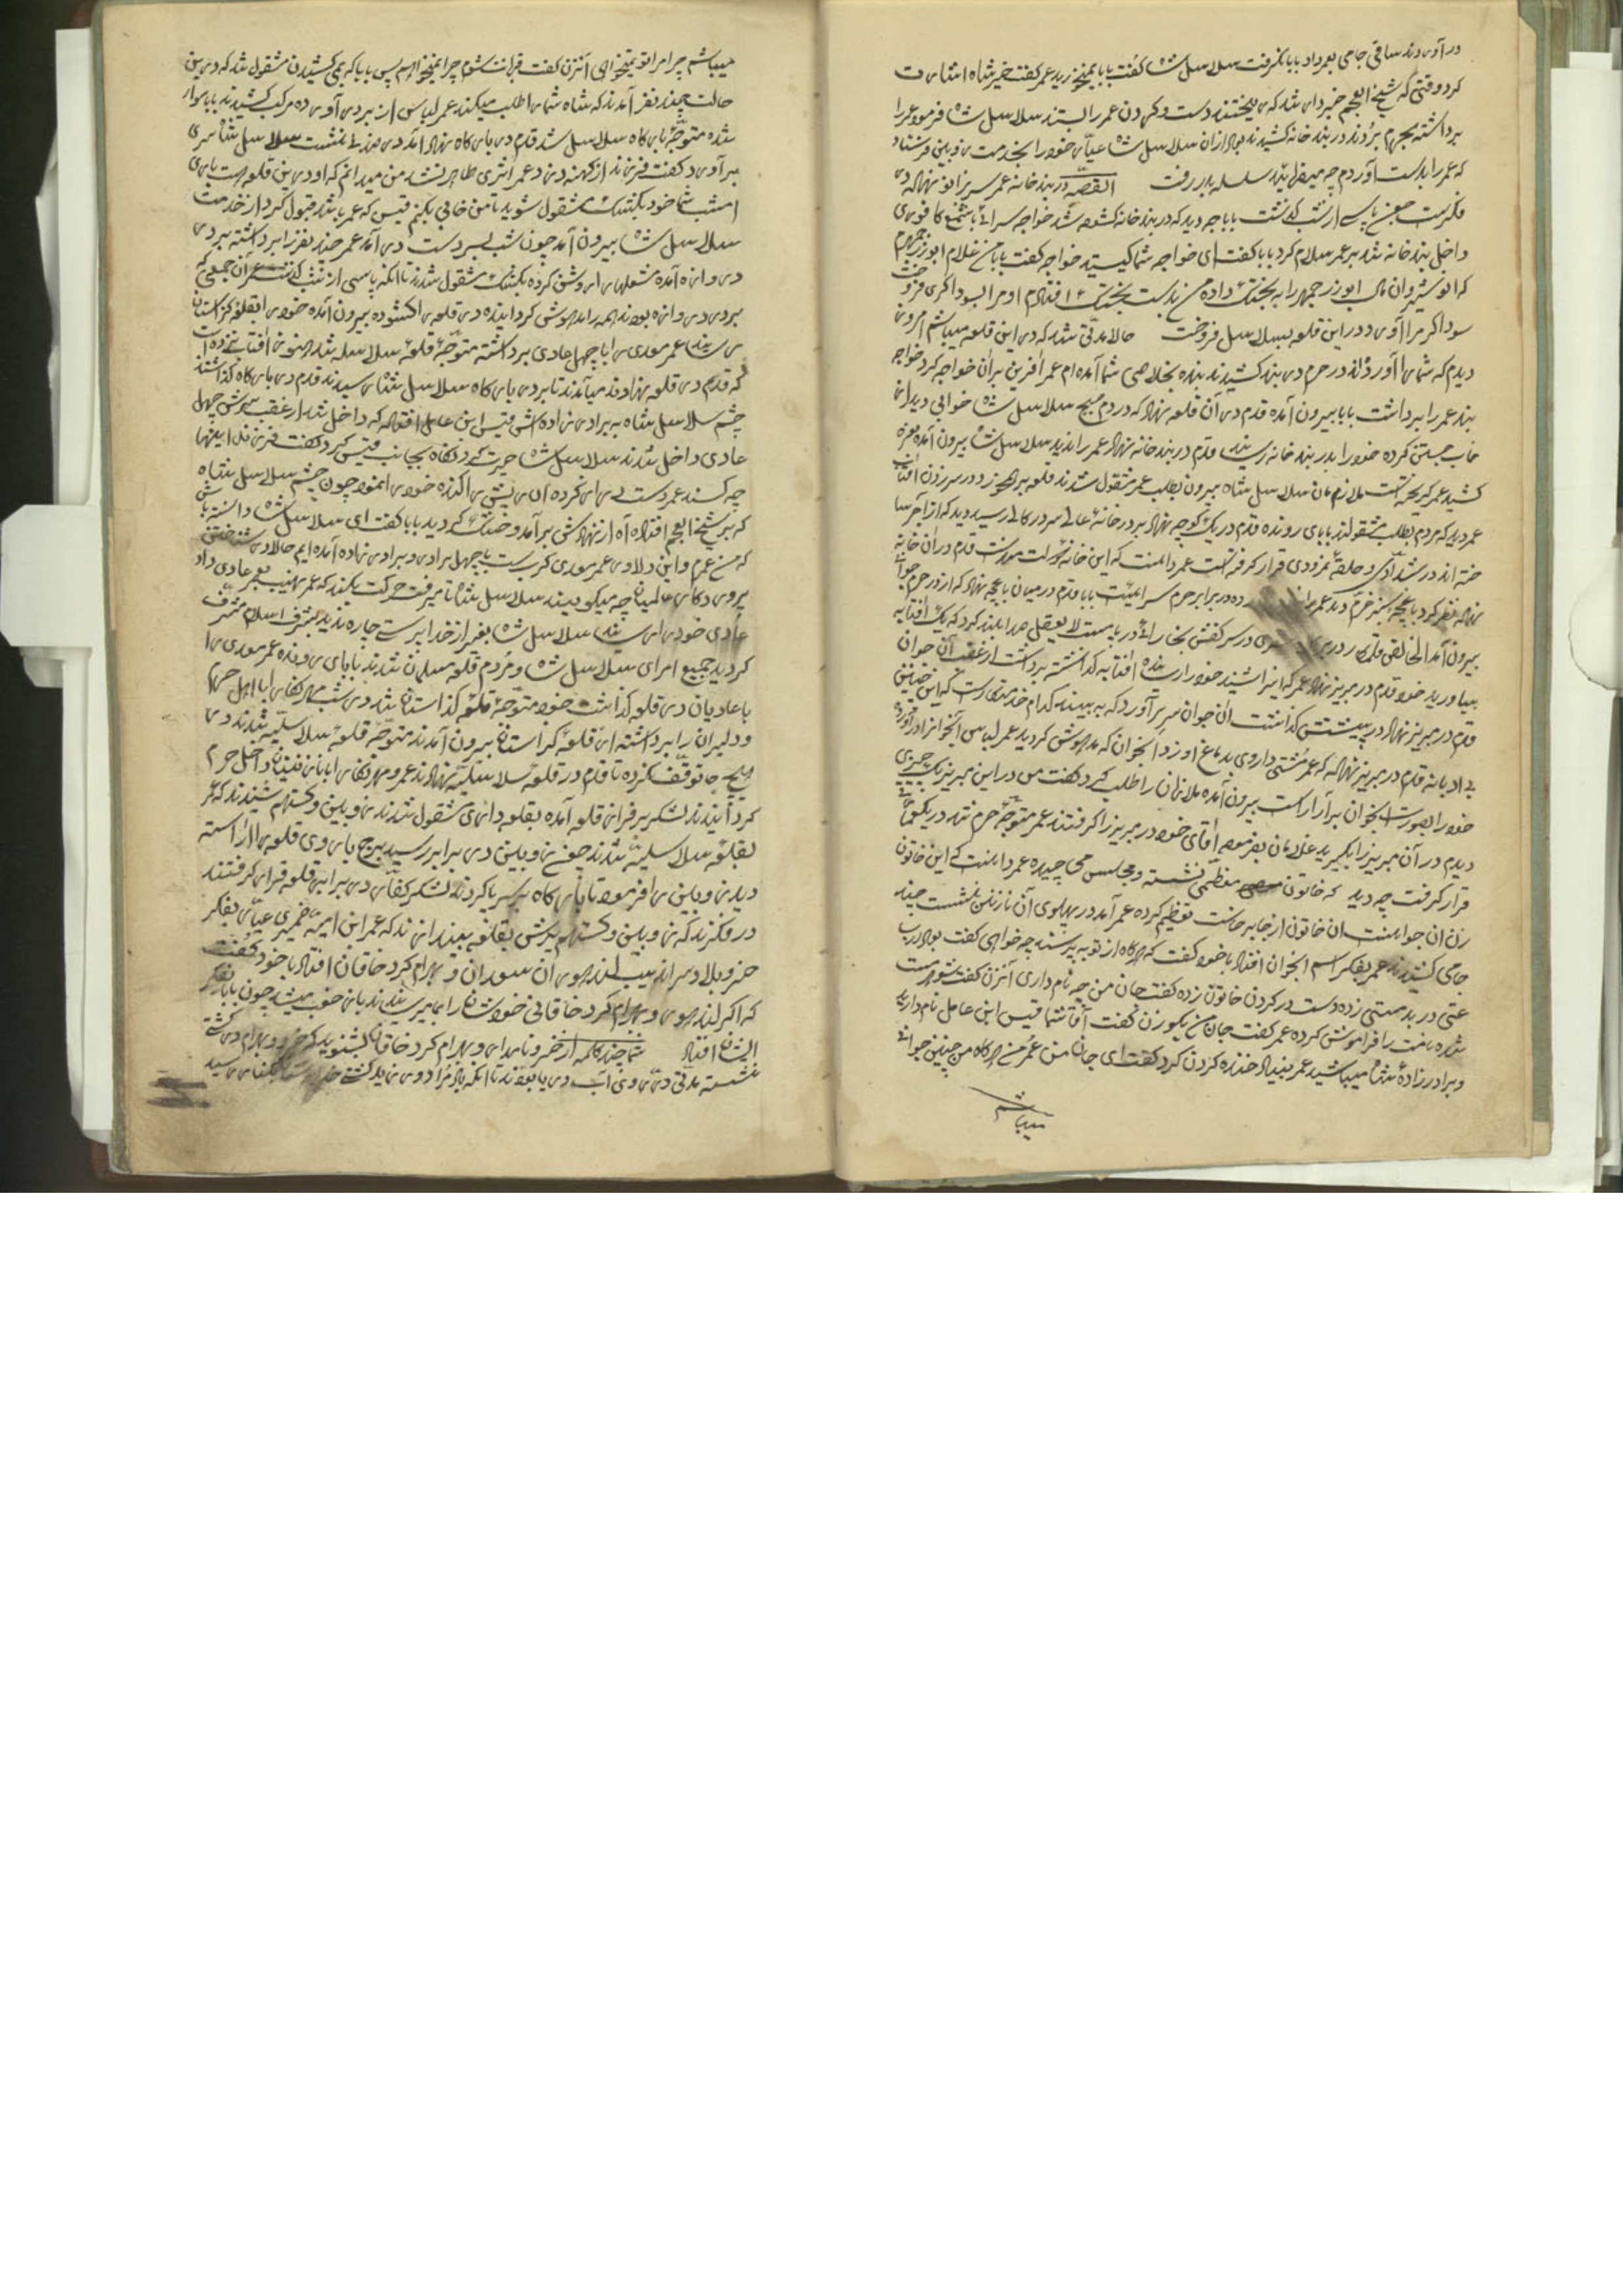 در آوردند ساقی جامی بعمر داد بابا نگرفت سلاسل شاه گفت بابا نمیخورید عمر گفت خیر شاه اشارت
کرد وقتی که شیخ العجم خبردار شد که ریختند دست و گردن عمر را بستند سلاسل شاه فرمود عمر را
برداشته بردند در بند خانه کشیدند بعد از آن سلاسل شاه عیار خود را بخدمت زوبین فرستاد
که عمر را بدست آوردم چه میفرمائید سلسله بلا در رفت القصه در بند خانه عمر سر بزانو نهاد که در
فکرست چون پاسی از شب گذشت بابا چه دید که در بند خانه گشوده شد خواجه سرائی با شمع کافوری
داخل بند خانه شد بر عمر سلام کرد بابا گفت ای خواجه شما کیستید خواجه گفت بابا من غلام ابوزرجمهرم
که انوشیروان مال ابوزرجمهر را به بختک داده من بدست بختک افتادم او مرا بسوداگری فروخت
سوداگر مرا آورد در این قلعه بسلاسل فروخت حالا مدتی شد که در این قلعه میباشم امروز
دیدم که شما را آوردند در حرم در بند کشیدند بنده بخلاصی شما آمده ام عمر آفرین بر آن خواجه کرد خواجه
بند عمر را برداشت بابا بیرون آمده قدم در آن قلعه نهاد که در دم صبح سلاسل شاه خوابی دید از
خواب جستن کرده خود را بدر بند خانه رسانید قدم در بند خانه نهاد عمر را ندید سلاسل شاه بیرون آمده نعره
کشید عمر گریخته است ملازمان سلاسل شاه بیرون بطلب عمر مشغول شدند قلعه بر هم خورد در سر زدن آفتاب
عمر دید که مردم بطلب مشغولند بابای رونده قدم در یک کوچه نهاد بر در خانه عالی سر در کالی رسید دید که از آجر سا
خته اند در شدادی و حلقه نمرودی قرار گرفته است عمر دانست که این خانه دولت مند است قدم در آن خانه
نهاد نظر کرد باغچه سبز خرم دید عمر را در برابر حرم سرائیست بابا قدم در میان باغچه نهاد که از در حرم جوانی
بیرون آمد الخالقی قلمکار در بر در سر کفش بخارائی در پا مست لا یعقل صدا بلند کرد که یک آفتابه
بیاورید خود قدم در مبرز نهاد عمر که این را شنید خود را رسانده آفتابه گذاشته برداشت از عقب آن جوان
قدم در مبرز نهاد در پیشش گذاشت آن جوان سر بر آورد که به بیند کدام خدمتکار است که این چنین
بی ادبانه قدم در مبرز نهاد که عمر مشتی داروی بدماغ او زد آن جوان که مدهوش گردید عمر لباس آن جوان را در آورده
خود را بصورت آن جوان برآراست بیرون آمده ملازمان را طلب کرد گفت من در این مبرز یک چیزی
دیدم در آن مبرز را بگیرید غلامان بفرموده آقای خود در مبرز را گرفتند عمر متوجه حرم شد در یکجائی
قرار گرفت چه دید که خاتون معظمی نشسته و مجلس می چیده عمر دانست که این خاتون
زن آن جوانست آن خاتون از جا برخاست تعظیم کرده عمر آمد در پهلوی آن نازنین نشست چند
جامی کشیدند عمر بفکر اسم آن جوان افتاد با خود گفت که هرگاه از تو بپرسند چه خواهی گفت بعد از
عمر در بد مستی زده دست در گردن خاتون زده گفت جان من چه نام داری آن زن گفت شوهر مست
شده نامت را فراموش کرده عمر گفت جان من بگو زن گفت آقا شما قیس ابن عامل نام دارید
و برادرزاده شاه میباشید عمر بنیاد خنده کردن کرد گفت ای جان من عمر من هرگاه من چنین جوانی
میباشم
میباشم چرا مرا تو نمیخواهی آن زن گفت قربانت شوم چرا نمیخواهم پس بابا که بمی کشیدن مشغول شد که در این
حالت چند نفر آمدند که شاه شما را طلب میکند عمر لباس از بر در آورده مرکب کشیدند بابا سوار
شده متوجه بارگاه سلاسل شد قدم در بارگاه نهاد آمد در صندلی نشست سلاسل شاه سر
بر آورد گفت فرزند از کهنه دزد عمر اثری ظاهر نشد من میدانم که او در این قلعه است باری
امشب شما خود بکشیک مشغول شوید تا من خوابی بکنم قیس که عمر باشد قبول کرد از خدمت
سلاسل شاه بیرون آمد چون شب بر سر دست در آمد عمر چند نفر را برداشته بر در
دروازه آمده مشعلها را روشن کرده بکشیک مشغول شدند تا آنکه پاسی از شب گذشت عمر آن جمعی که
بر در دروازه بودند همه را مدهوش گردانیده در قلعه را گشوده بیرون آمده خود را بقلعه گزاستان
رسانید عمر معدی را با چهل عادی برداشته متوجه قلعه سلاسله شد هنوز آفتاب نزده است
که قدم در قلعه نهادند میآمدند تا بر در بارگاه سلاسل شاه رسیدند قدم در بارگاه گذاشتند
چشم سلاسل شاه به برادرزاده اش قیس ابن عامل افتاد که داخل شد از عقب سرش چهل
عادی داخل شدند سلاسل شاه حیرت کرد نگاه بجانب قیس کرد گفت فرزند اینها
چه کسند عمر دست دراز کرده آن ریش را کنده خود را نمود چون چشم سلاسل شاه
که بر شیخ العجم افتاد آه از نهادش برآمد و خشک گردید بابا گفت ای سلاسل شاه دانسته باش
که من عمرم و این دلاور عمر معدی کربست با چهل برادر و برادرزاده آمده ایم حالا در شناختن
پروردگار عالمیان چه میگوئید سلاسل شاه تا میرفت حرکت بکند که عمر نهیب بر عادی داد
عادی خود را رسانید سلاسل شاه بغیر از خداپرستی چاره ندید بشرف اسلام مشرف
گردید جمیع امرای سلاسل شاه و مردم قلعه مسلمان شدند بابای رونده عمر معدی را
با عادیان در قلعه گذاشت خود متوجه قلعه گزاستان شد در شب مهرنگار را با اهل حرم
و دلیران را برداشته از قلعه گزاستان بیرون آمدند متوجه قلعه سلاسلیه شدند در
هیچ جا توقف نکرده تا قدم در قلعه سلاسلیه نهادند عمر و مهرنگار را با نازنینان داخل حرم
گردانیدند لشکر بر فراز قلعه آمده بقلعه داری مشغول شدند زوبین و گستهم شنیدند که عمر
بقلعه سلاسلیه شدند چون زوبین در برابر رسید برج باروی قلعه را آراسته
دید زوبین را فرمود تا بارگاه بر سر پا کردند لشکر کفار در برابر قلعه قرار گرفتند
در فکرند که زوبین و گستهم یورش بقلعه بیندازند که عمر ابن امیه ضمیری عیار بفکر
حمزه و بلا و سراندیب لندهور ابن سعدان و بهرام گرد خاقان افتاد با خود گفت
که اگر لندهور و بهرام گرد خاقانی خود شان را بما میرسانیدند بس خوب میشد چون بابا بفکر
ایشان افتاد شما چند کلمه از خسرو نامدار و بهرام گرد خاقان بشنوید که خسرو و بهرام در کشتی
نشسته مدتی در روی آب دریا بودند تا آنکه باد مراد وزید کشتی بکنار رسید